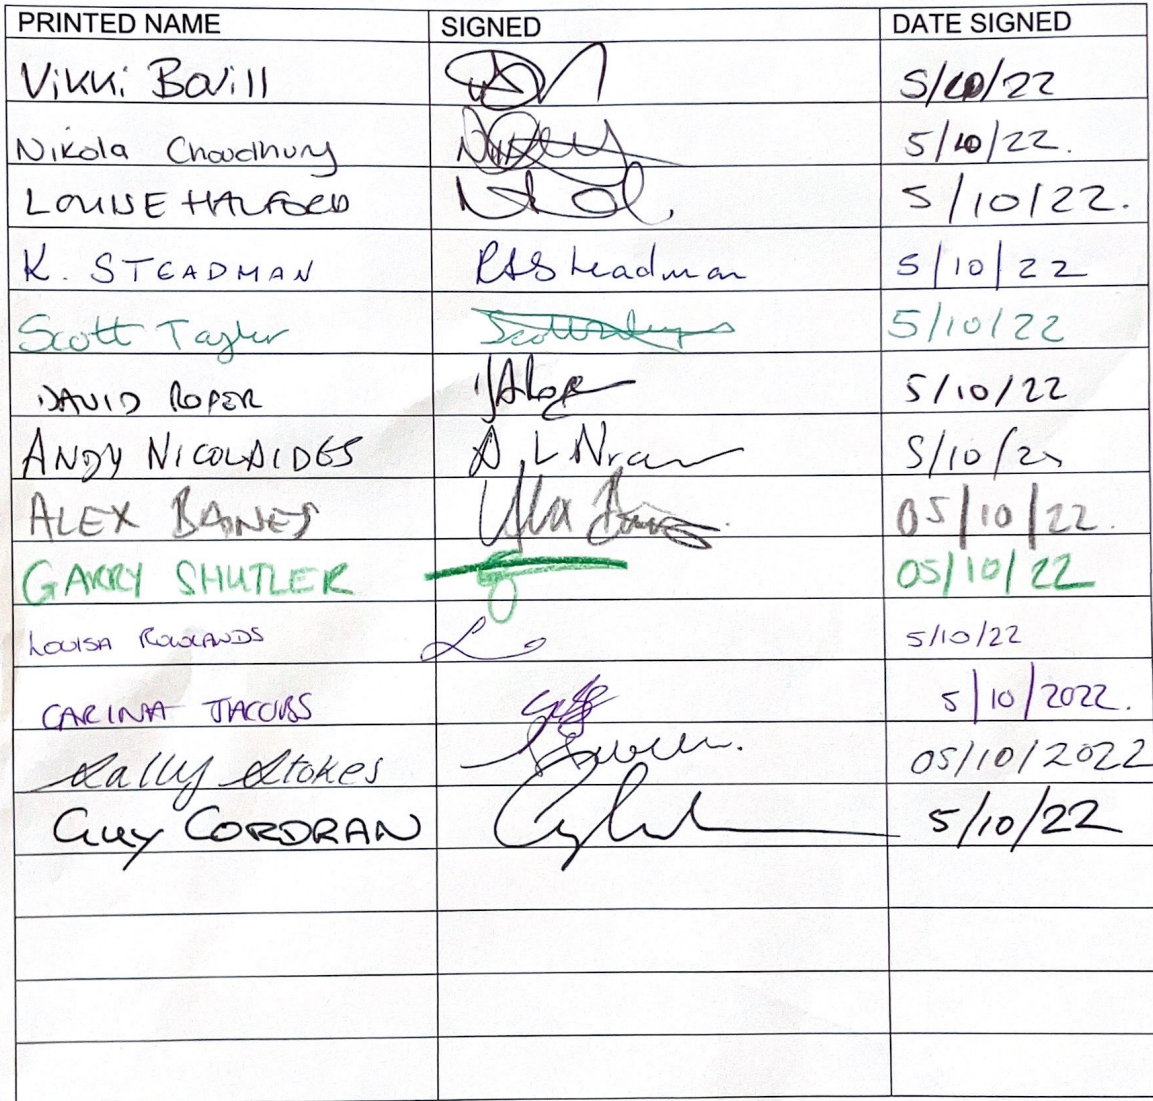 PRINTED NAME SIGNED DATE SIGNED
Vikki Bovill 5/10/22
Nikola Choudhury 5/10/22.
LOUISE HALFORD 5/10/22.
K. STEADMAN KASteadman 5/10/22
Scott Taylor 5/10/22
DAVID ROPER 5/10/22
ANDY NICOLAIDES 5/10/22
ALEX BAINES Alex Baines 05/10/22.
GARRY SHUTLER 05/10/22
LOUISA ROWLANDS 5/10/22
CARINA JACOBS 5/10/2022.
Sally Stokes 05/10/2022
GUY CORDRAN 5/10/22